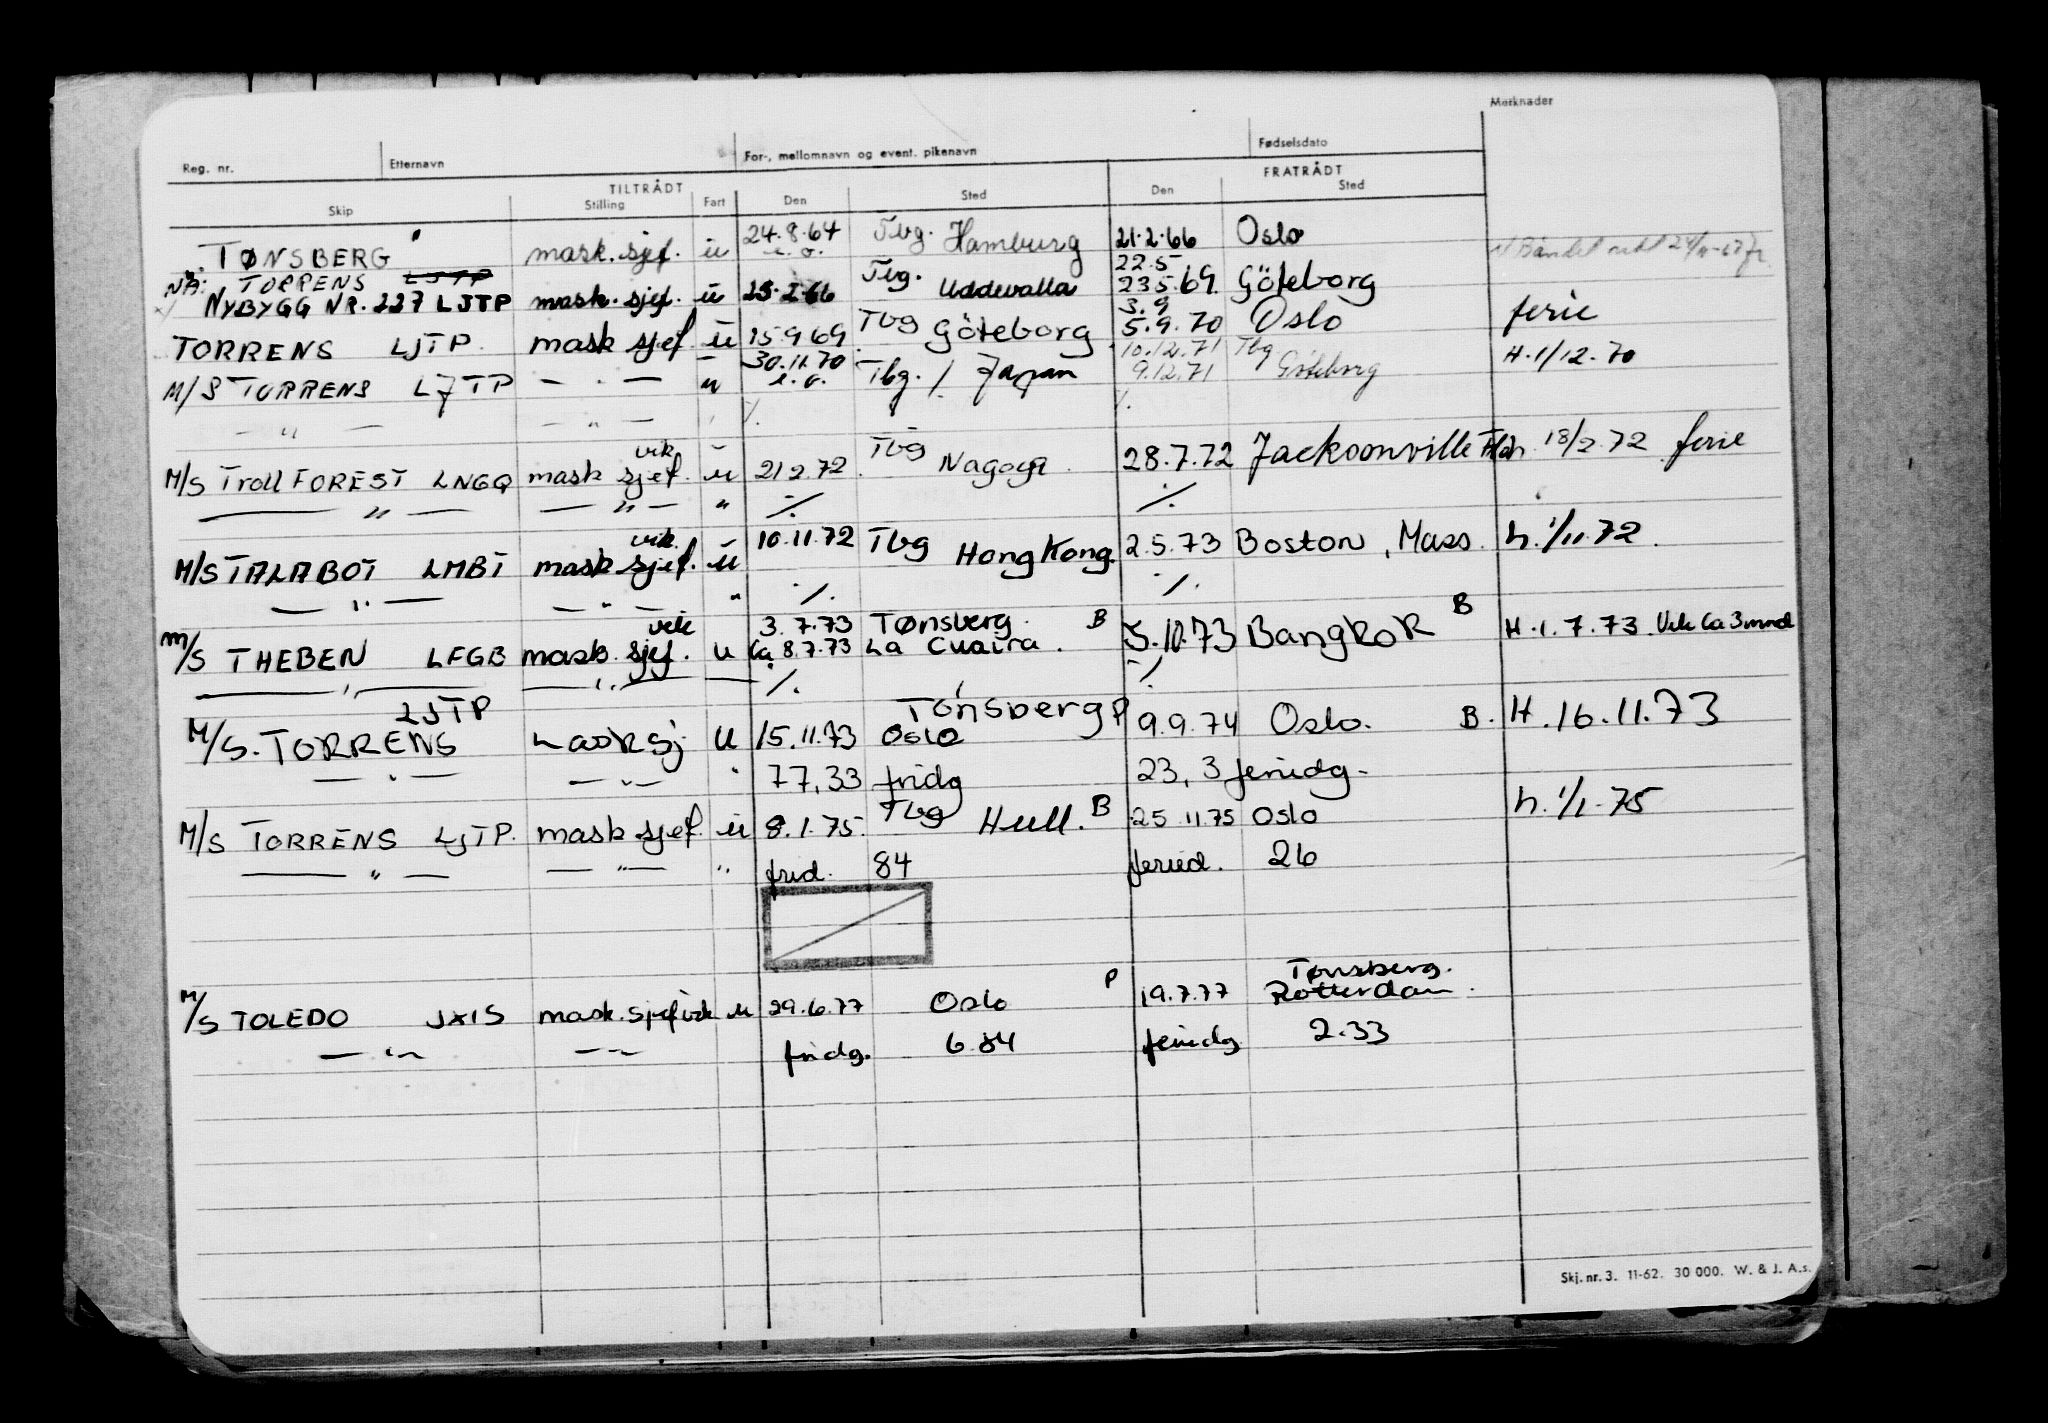 Merknader
Reg. nr. Etternavn For-, mellomnavn og event. pikenavn Fødselsdato
TILTRÅDT FRATRÅDT
Skip Stilling Fart Den Sted Den Sted
TØNSBERG mask. sjef. u 24.8.64 Tbg. Hamburg 21.2.66 Oslo
NÅ: TORRENS LJTP 22.5
NYBYGG NR. 227 LJTP mask. sjef. u Tbg. Uddevalla 23.5.69 Göteborg
TORRENS LJTP. mask sjef u 15.9.69 Tbg Göteborg 3.9 5.9.70 Oslo ferie
M/S TORRENS LJTP — " — u 30.11.70 Tbg. / Japan 10.12.71 9.12.71 Tbg Göteborg H. 1/12.70
— " — — " — " %. %.
M/S Troll FOREST LNGQ mask sjef. vik u 21.2.72 Tbg Nagoya 28.7.72 Jacksonville Fla h. 18/2.72 ferie
— " — — " — " %. %.
M/S TALABOT LMBT mask sjef. vik. u 10.11.72 Tbg Hong Kong. 2.5.73 Boston, Mass. h. 1/11.72.
— " — — " — " %. %.
3.7.73 Tønsberg. B
M/S THEBEN LFGB mask. sjef. vik u Ca 8.7.73 La Cuaira. 5.10.73 Bangkok B H. 1.7.73. Vik Ca 3 mnd
— " — — " — — %. %.
LJTP Tønsberg P
M/S. TORRENS u 15.11.73 Oslo 9.9.74 Oslo. B. H. 16.11.73
— " — — " — " 77,33 fridg 23,3 feriedg.
M/S TORRENS LJTP. mask sjef. u 8.1.75. Tbg Hull. B 25.11.75 Oslo h. 1/1.75
— " — — " — " frid. 84 feried. 26
Tønsberg.
M/S TOLEDO JXIS mask. sjef vik u 29.6.77 Oslo P 19.7.77 Rotterdam.
— " — — " — fridg. 6.84 feriedg 2.33
Skj. nr. 3. 11-62. 30 000. W. & J. A.s.